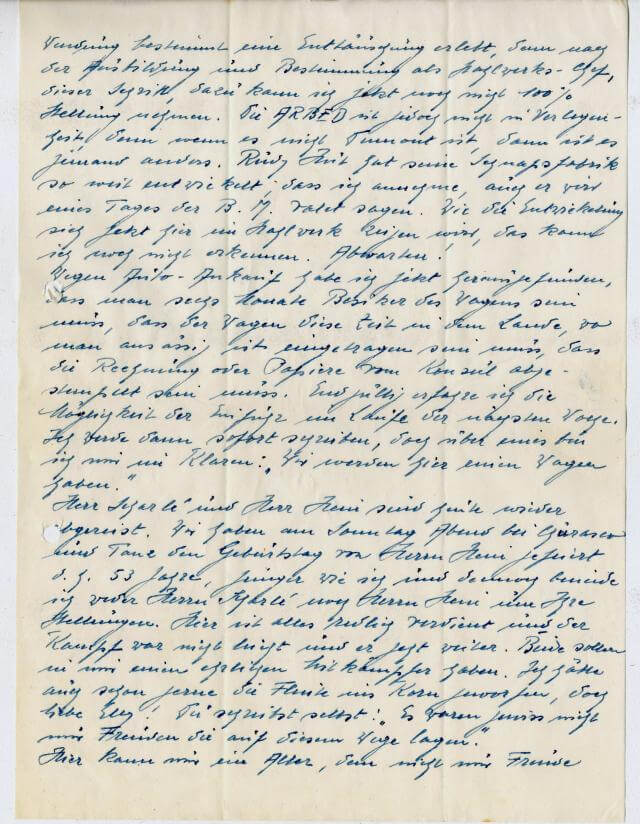 Wendung bestimmt eine Enttäuschung erlebt, denn nach
der Ausbildung und Bestimmung als Stahlwerks-Chef,
dieser Schritt, dazu kann ich jetzt noch nicht 100%
Stellung nehmen. Die ARBED ist jedoch nicht in Verlegen-
heit, denn wenn es nicht Turmont ist, dann ist es
jemand anders. Rudy hat seine Schnapsfabrik
so weit entwickelt, dass ich annehme, auch er wird
eines Tages der B.M. valet sagen. Wie die Entwickelung
sich jetzt hier im Stahlwerk zeigen wird, das kann
ich noch nicht erkennen. Abwarten!
Wegen Auto-Ankauf habe ich jetzt herausgefunden,
dass man sechs Monate Besitzer des Wagens sein
muss, dass der Wagen diese Zeit in dem Lande, wo
man ansässig ist eingetragen sein muss, dass
die Rechnung oder Papiere vom Konsul abge-
stempelt sein muss. Endgültig erfahre ich die
Möglichkeit der Einfuhr im Laufe der nächsten Woche.
Ich werde dann sofort schreiben, doch über eines bin
ich mir im Klaren: "Wir werden hier einen Wagen
haben."
Herr Scharlé und Herr Heni sind heute wieder
abgereist. Wir haben am Sonntag Abend bei Churasco
und Tanz den Geburtstag von Herrn Heni gefeiert
d.h. 53 Jahre, jünger wie ich und dennoch beneide
ich weder Herrn Scharlé noch Herrn Heni um Ihre
Stellungen. Hier ist alles redlich verdient und der
Kampf war nicht leicht und er geht weiter. Beide sollen
in mir einen ehrlichen Mitkämpfer haben. Ich hätte
auch schon gerne die Flinte ins Korn geworfen, doch
liebe Elly! Du schreibst selbst: "Es waren gewiss nicht
nur Freuden die auf diesem Wege lagen."
Hier kann nur ein Alter, dem nicht nur Freude